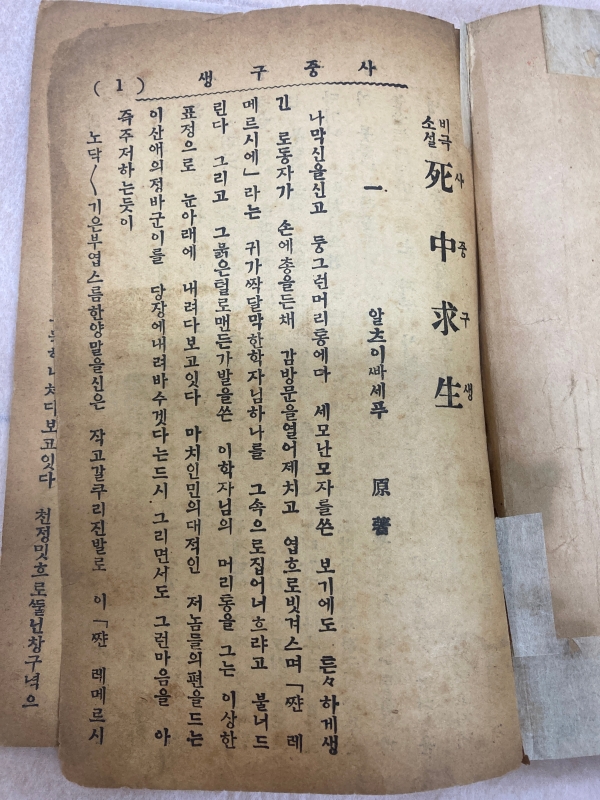 사 중 구 생
( 1 )
비극
소설
死中求生
사 중 구 생
알츠이빠세푸 原著
一
나막신을신고 둥그런머리통에다 세모난모자를쓴 보기에도 튼々하게생
긴 로동자가 손에총을든채 감방문을열어제치고 엽흐로빗겨스며 「쨘 레
메르시에」라는 귀가짝달막한학자님하나를 그속으로집어너흐랴고 불너드
린다 그리고 그붉은털로맨든가발을쓴 이학자님의 머리통을 그는이상한
표정으로 눈아래에 내려다보고잇다 마치인민의대적인 저놈들의편을드는
이산애의정바군이를 당장에내려바수겟다는드시 그리면서도 그런마음을 아
쥬주저하는듯이
노닥〱기은부엽스름한양말을신은 작고갈쿠리진발로 이「쨘 레메르시
치다보고잇다 천정밋흐로뚤닌창구녁으